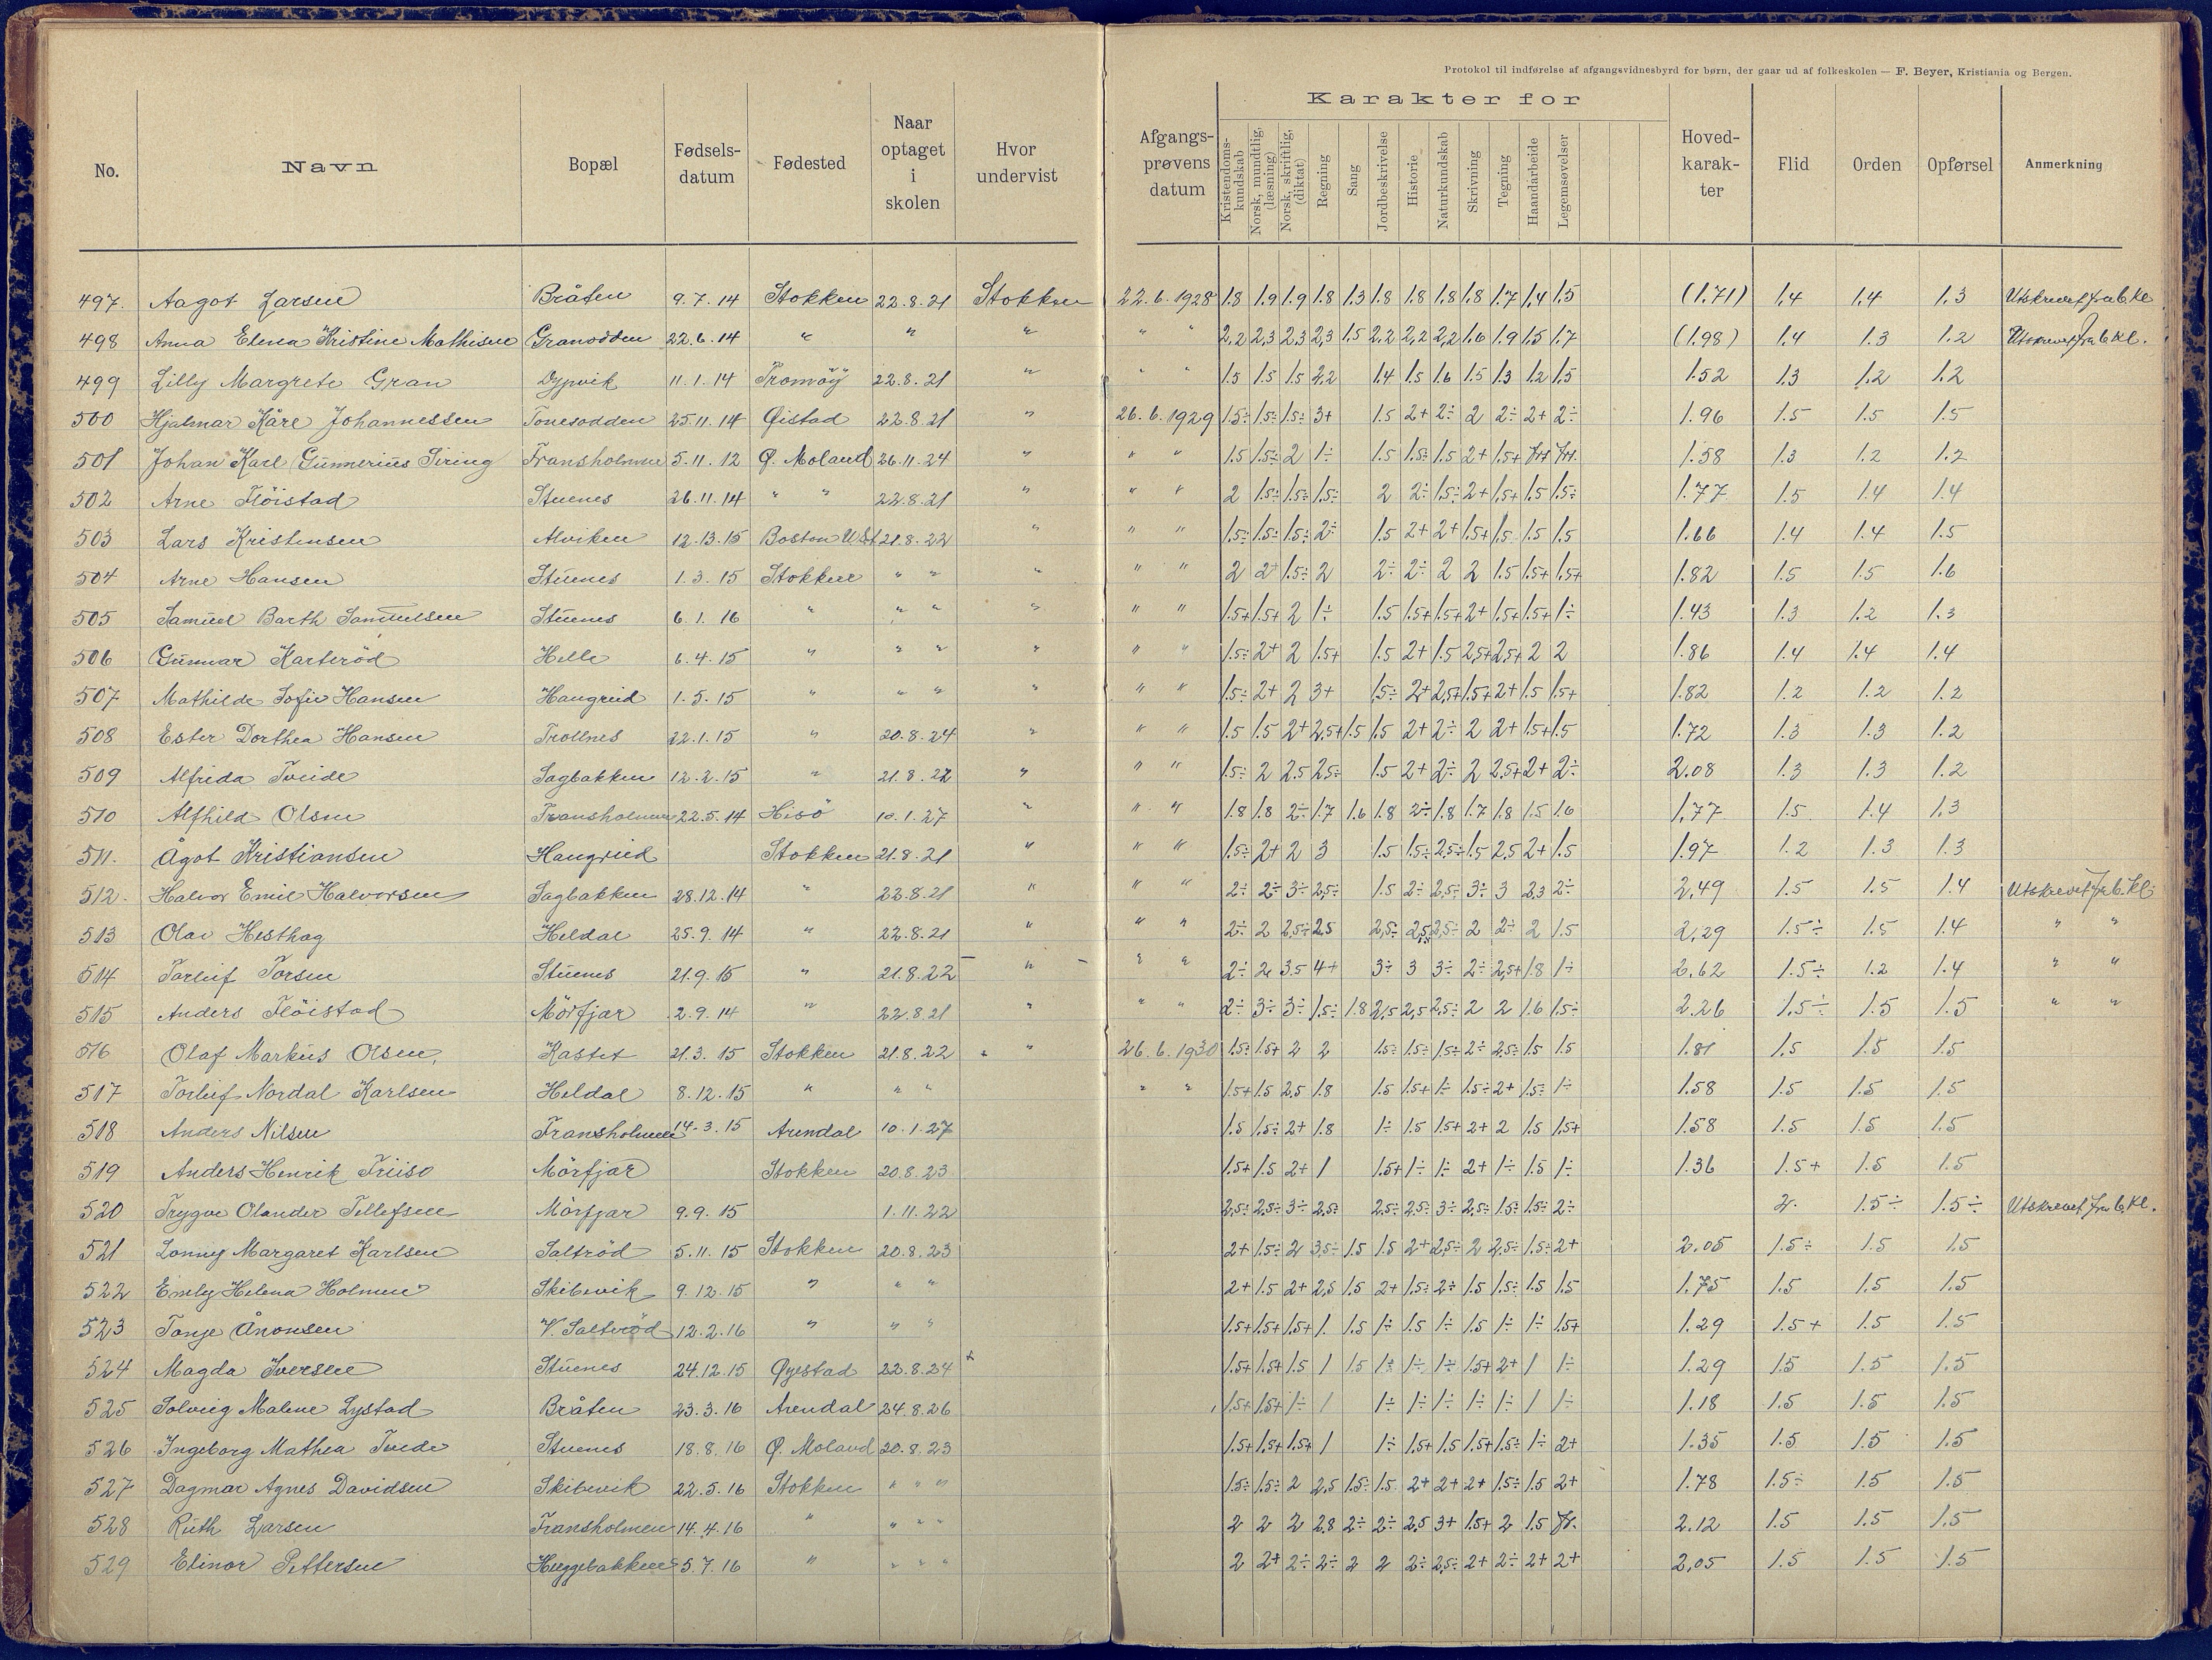 Protokol til indførelse af afgangsvidnesbyrd for børn, der gaar ud af folkeskolen — F. Beyer, Kristiania og Bergen.
No. Navn Bopæl Fødsels-datum Fødested Naar optaget i skolen Hvor undervist Afgangs-prøvens datum Karakter for Kristendoms-kundskab Norsk, mundtlig, (læsning) Norsk, skriftlig, (diktat) Regning Sang Jordbeskrivelse Historie Naturkundskab Skrivning Tegning Haandarbeide Legemsøvelser Hoved-karak-ter Flid Orden Opførsel Anmerkning
497. Aagot Larsen Bråten 9.7.14 Stokken 22.8.21 Stokken 22.6.1928 1.8 1.9 1.9 1.8 1.3 1.8 1.8 1.8 1.8 1.7 1.4 1.5 (1.71) 1.4 1.4 1.3 Utskrevet fra 6 kl
498 Anna Elena Kristine Mathisen Granodden 22.6.14 " " " " " 2,2 2,3 2,3 2,3 1.5 2,2 2,2 2,2 1.6 1.9 1.5 1.7 (1.98) 1.4 1.3 1.2 Utskrevet fra 6 kl.
499 Lilly Margrete Gran Dypvik 11.1.14 Tromöy 22.8.21 " " " 1.5 1.5 1.5 2,2 1.4 1.5 1.6 1.5 1.3 1.2 1.5 1.52 1.3 1.2 1.2
500 Hjalmar Kåre Johannessen Tonesodden 25.11.14 Øistad 22.8.21 " 26.6.1929 1.5÷ 1.5÷ 1.5÷ 3+ 1.5 2+ 2÷ 2 2÷ 2+ 2÷ 1.96 1.5 1.5 1.5
501 Johan Karl Gunnerius Siring Fransholmen 5.11.12 Ø. Moland 26.11.24 " " " 1.5 1.5÷ 2 1÷ 1.5 1.5÷ 1.5 2+ 1.5+ 1.58 1.3 1.2 1.2
502 Arne Flöistad Stuenes 26.11.14 " " 22.8.21 " " " 2 1.5÷ 1.5÷ 1.5÷ 2 2÷ 1.5÷ 2+ 1.5+ 1.5 1.5÷ 1.77 1.5 1.4 1.4
503 Lars Kristensen Alviken 12.13.15 Boston USt 21.8.22 " " " 1.5÷ 1.5÷ 1.5÷ 2÷ 1.5 2+ 2+ 1.5+ 1.5 1.5 1.5 1.66 1.4 1.4 1.5
504 Arne Hansen Stuenes 1.3.15 Stokken " " " " " 2 2+ 1.5÷ 2 2÷ 2÷ 2 2 1.5 1.5+ 1.5+ 1.82 1.5 1.5 1.6
505 Samuel Barth Samuelsen Stuenes 6.1.16 " " " " " " 1.5+ 1.5+ 2 1÷ 1.5 1.5+ 1.5+ 2+ 1.5+ 1.5+ 1÷ 1.43 1.3 1.2 1.3
506 Gunnar Karteröd Helle 6.4.15 " " " " " " 1.5÷ 2+ 2 1.5+ 1.5 2+ 1.5 2,5+ 2,5+ 2 2 1.86 1.4 1.4 1.4
507 Mathilde Sofie Hansen Haugreid 1.5.15 " " " " " " 1.5÷ 2+ 2 3+ 1.5÷ 2+ 2,5+ 1.5+ 2+ 1.5 1.5+ 1.82 1.2 1.2 1.2
508 Ester Dorthea Hansen Trollnes 22.1.15 " 20.8.24 " " " 1.5 1.5 2+ 2,5+ 1.5 1.5 2+ 2÷ 2 2+ 1.5+ 1.5 1.72 1.3 1.3 1.2
509 Alfrida Tveide Sagbakken 12.2.15 " 21.8.22 " " " 1.5÷ 2 2.5 2,5÷ 1.5 2+ 2÷ 2 2,5+ 2+ 2÷ 2.08 1.3 1.3 1.2
510 Alfhild Olsen Fransholmen 22.5.14 Hisö 10.1.27 " " " 1.8 1.8 2÷ 1.7 1.6 1.8 2÷ 1.8 1.7 1.8 1.5 1.6 1,77 1.5 1.4 1.3
511. Ågot Kristiansen Haugreid Stokken 21.8.21 " " " 1.5÷ 2+ 2 3 1.5 1.5÷ 2,5÷ 1.5 2,5 2+ 1.5 1.97 1.2 1.3 1.3
512. Halvor Emil Halvorsen Sagbakken 28.12.14 " 22.8.21 " " " 2÷ 2÷ 3÷ 2,5÷ 1.5 2÷ 2,5÷ 3÷ 3 2,3 2÷ 2,49 1.5 1.5 1.4 Utskrevet fra 6. kl.
513 Olav Hesthag Heldal 25.9.14 " 22.8.21 " " " 2÷ 2 2,5÷ 2,5 2,5÷ 2,5 2,5÷ 2 2÷ 2 1.5 2,29 1.5÷ 1.5 1.4 " "
514 Torleif Torsen Stuenes 21.9.15 " 21.8.22 " " " 2÷ 2 3.5 4+ 3÷ 3 3÷ 2÷ 2,5+ 1.8 1÷ 2.62 1.5÷ 1.2 1.4 " "
515 Anders Flöistad Mörfjær 2.9.14 " 22.8.21 " " " 2÷ 3÷ 3÷ 1.5÷ 1.8 2,5 2,5 2,5÷ 2 2 1.6 1.5÷ 2.26 1.5÷ 1.5 1.5 " "
516 Olaf Markus Olsen, Kastet 21.3.15 Stokken 21.8.22 " 26.6.1930 1.5÷ 1.5+ 2 2 1.5÷ 1.5÷ 1.5÷ 2÷ 2,5÷ 1.5 1.5 1.81 1.5 1.5 1.5
517 Torleif Nordal Karlsen Heldal 8.12.15 " " " " " 1.5+ 1.5 2,5 1.8 1.5 1.5+ 1÷ 1.5÷ 2+ 1.5÷ 1÷ 1.58 1.5 1.5 1.5
518 Anders Nilsen Fransholmen 14.3.15 Arendal 10.1.27 1.5 1.5÷ 2+ 1.8 1÷ 1.5 1.5+ 2+ 2 1.5 1.5+ 1.58 1.5 1.5 1.5
519 Anders Henrik Friiso Mörfjær Stokken 20.8.23 1.5+ 1.5 2+ 1 1.5+ 1÷ 1÷ 2+ 1÷ 1.5 1÷ 1.36 1.5+ 1.5 1.5
520 Trygve Olander Tellefsen Mörfjær 9.9.15 1.11.22 2,5÷ 2,5÷ 3÷ 2,5÷ 2,5÷ 2,5÷ 3÷ 2,5÷ 1.5÷ 1.5÷ 2÷ 2. 1.5÷ 1.5÷ Utskrevet fra 6 kl.
521 Lonny Margaret Karlsen Saltröd 5.11.15 Stokken 20.8.23 2+ 1.5÷ 2 3,5÷ 1.5 1.5 2+ 2,5÷ 2 2,5÷ 1.5÷ 2+ 2.05 1.5÷ 1.5 1.5
522 Emely Helena Holmen Skibevik 9.12.15 " " " 2+ 1.5 2+ 2,5 1.5 2+ 1.5÷ 2÷ 1.5 1.5÷ 1.5 1.5 1.75 1.5 1.5 1.5
523 Tonje Ånonsen V. Saltröd 12.2.16 " " " 1.5+ 1.5+ 1.5+ 1 1.5 1÷ 1.5 1÷ 1.5 1÷ 1÷ 1.5+ 1.29 1.5+ 1.5 1.5
524 Magda Iversen Stuenes 24.12.15 Øyestad 22.8.24 1.5+ 1.5+ 1.5 1 1.5 1÷ 1÷ 1÷ 1.5+ 2+ 1 1÷ 1.29 1.5 1.5 1.5
525 Solveig Malene Lystad Bråten 23.3.16 Arendal 24.8.26 1.5+ 1.5+ 1÷ 1 1÷ 1÷ 1÷ 1÷ 1÷ 1 1÷ 1.18 1.5 1.5 1.5
526 Ingeborg Mathea Tveide Stuenes 18.8.16 Ø. Moland 20.8.23 1.5+ 1.5+ 1.5+ 1 1÷ 1.5+ 1.5 1.5+ 1.5÷ 1÷ 2+ 1.35 1.5 1.5 1.5
527 Dagmar Agnes Davidsen Skibevik 22.5.16 Stokken " " " 1.5÷ 1.5÷ 2 2,5 1.5÷ 1.5 2+ 2+ 2+ 1.5÷ 1.5 2+ 1.78 1.5÷ 1.5 1.5
528 Ruth Larsen Fransholmen 14.4.16 " " " " 2 2 2 2,8 2÷ 2÷ 2,5 3+ 1.5+ 2 1.5 2.12 1.5 1.5 1.5
529 Elinor Pettersen Heggebakken 5.7.16 " " " " 2 2+ 2÷ 2÷ 2 2 2÷ 2,5÷ 2+ 2÷ 2+ 2+ 2,05 1.5 1.5 1.5